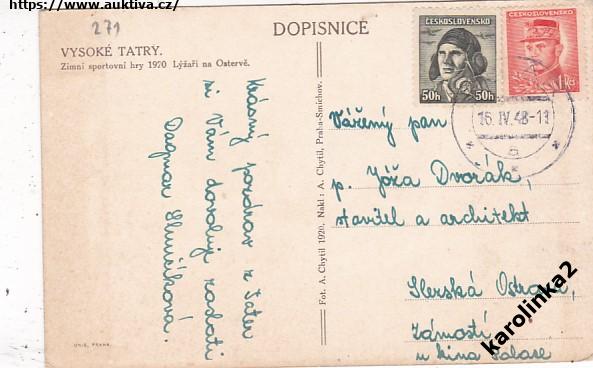 https://www.auktiva.cz/
271
DOPISNICE
VYSOKÉ TATRY.
Zimní sportovní hry 1920 Lyžaři na Ostervě.
ČESKOSLOVENSKO
50h 50h
ČESKOSLOVENSKO
1 Kčs
15. IV. 48-11
Krásný pozdrav z Tater
si Vám dovoluje zaslati
Dagmar
Fot. A. Chytil 1920, Nakl: A. Chytil, Praha-Smíchov.
Vážený pan
p. Jóža Dvořák,
stavitel a architekt
Slezská Ostrava,
Zámostí
u kina Palase
UNIE, PRAHA.
karolinka2